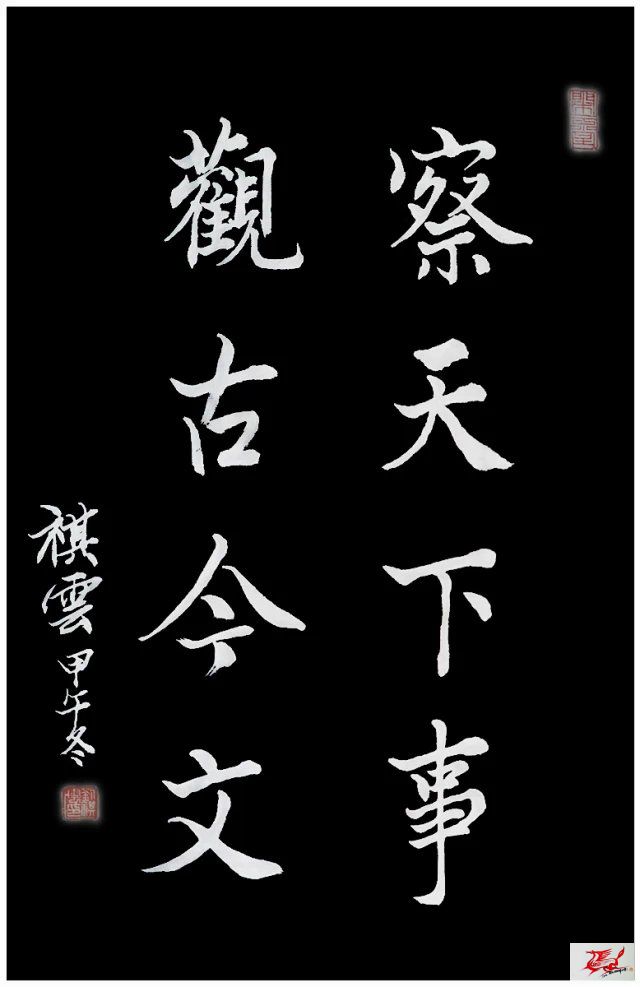 察天下事
觀古今文
祺雲甲午冬